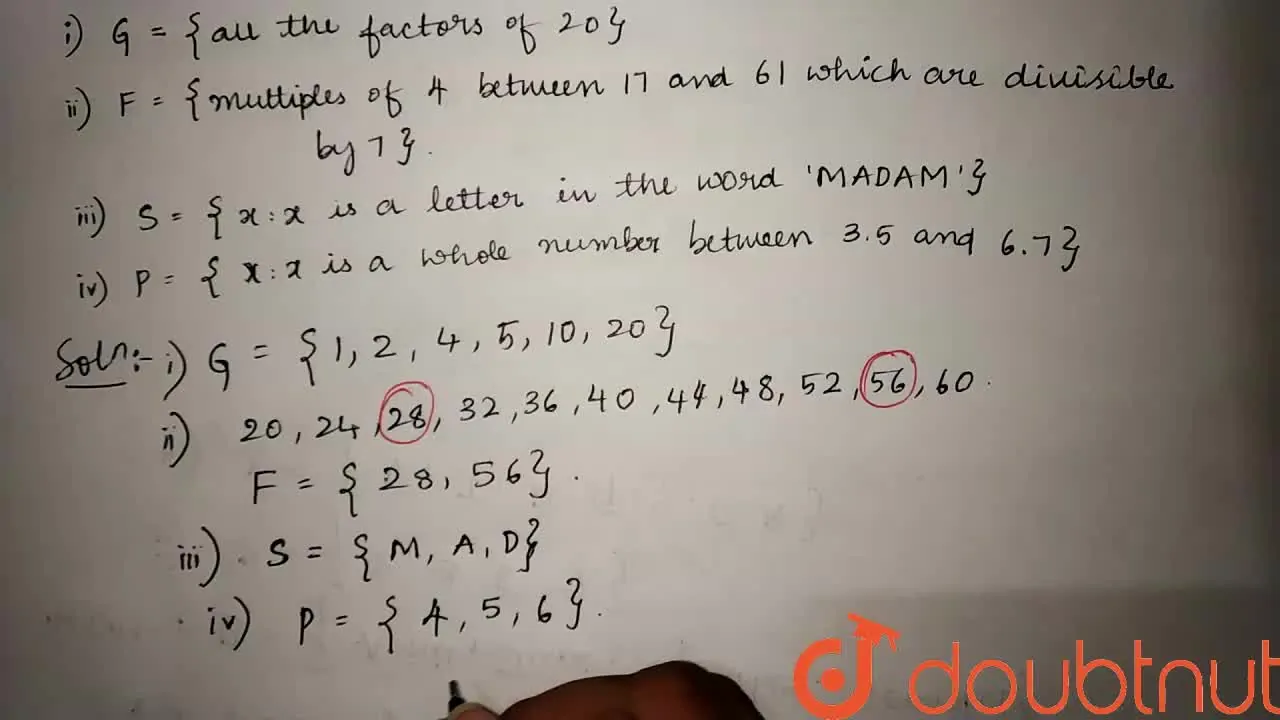 i) G = {all the factors of 20}
ii) F = {multiples of 4 between 17 and 61 which are divisible
by 7}.
iii) S = {x:x is a letter in the word 'MADAM'}
iv) P = {x:x is a whole number between 3.5 and 6.7}
Soln:- i) G = {1, 2, 4, 5, 10, 20}
ii) 20, 24, 28, 32, 36, 40, 44, 48, 52, 56, 60.
F = {28, 56}.
iii) S = {M, A, D}
iv) P = {4, 5, 6}.
doubtnut